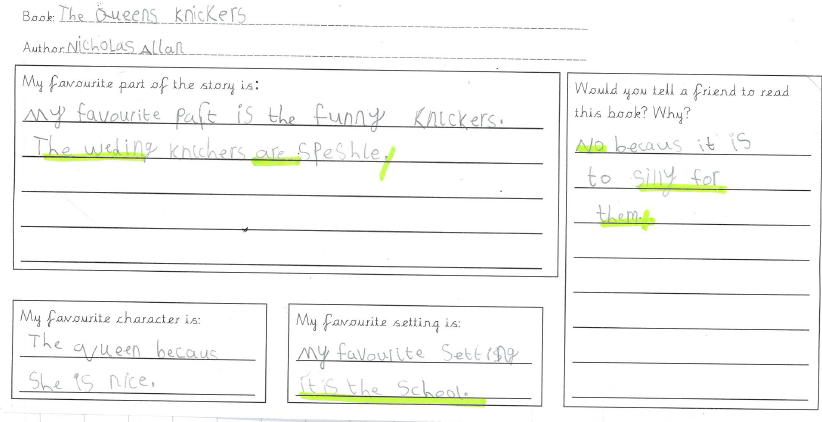 Book: The Queens Knickers
Author: Nicholas Allan
My favourite part of the story is:
My favourite part is the funny Knickers.
The weding knichers are speshle.
Would you tell a friend to read
this book? Why?
No becaus it is
to silly for
them.
My favourite character is:
The queen becaus
She is nice.
My favourite setting is:
My favourite Setting
it is the School.